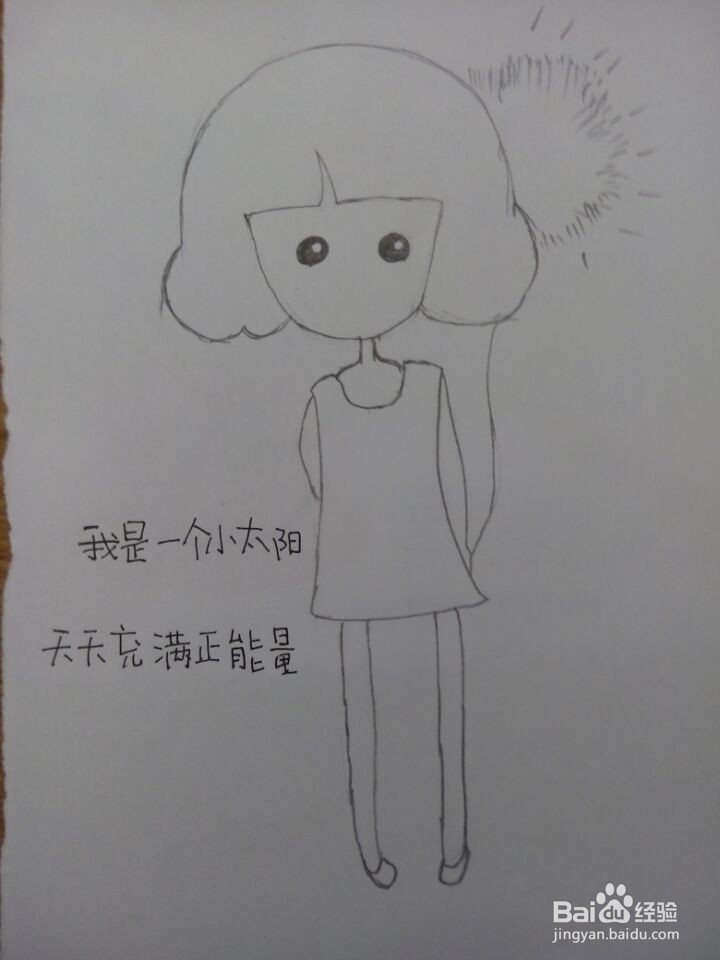 我是一个小太阳
天天充满正能量
Baidu经验
jingyan.baidu.com